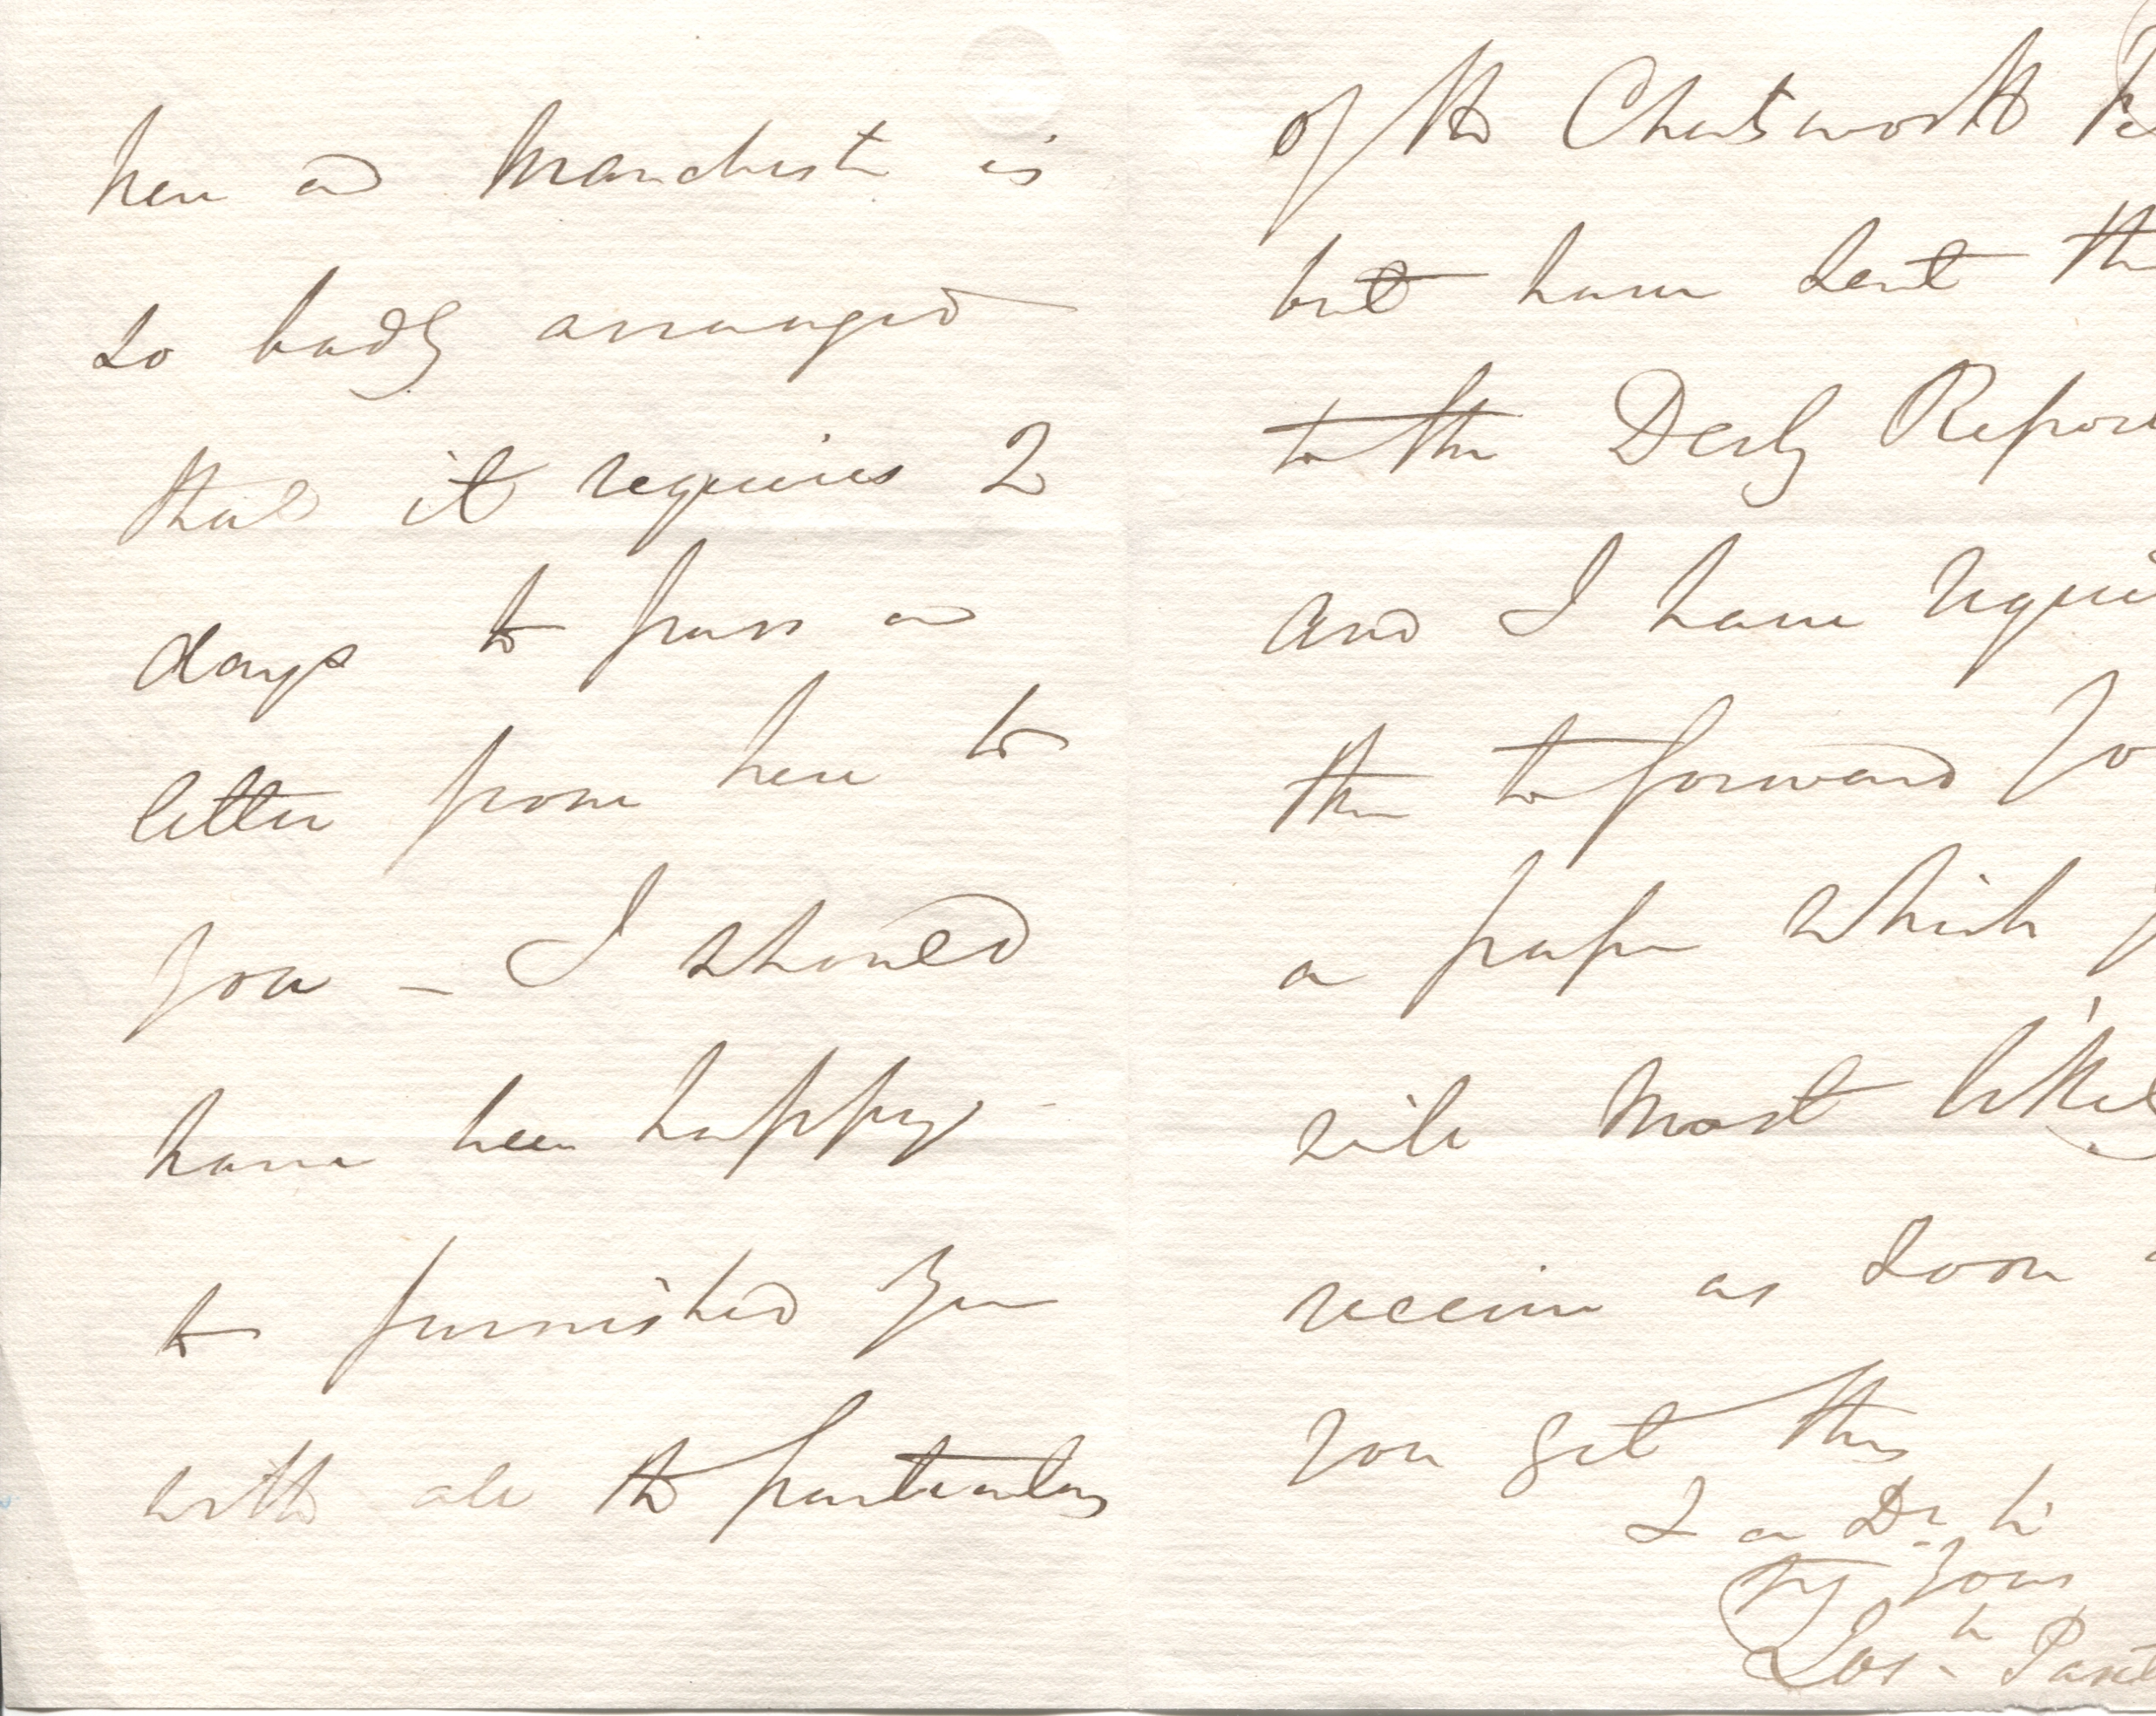 here and Manchester is
so badly arranged
that it requires 2
days to pass a
letter from here to
you – I should
have been happy
to furnished you
with all the particulars
of the Chatsworth
but have sent
to the Derby Repor
and I have requi
them to forward yo
a paper which
will most likel
receive as soon
you get this
I am Dr Sir
Try Yours
Josh Paxt